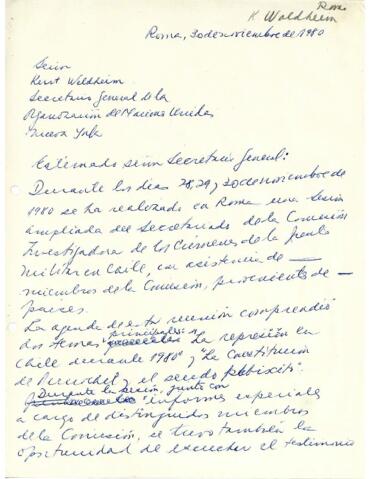 Roma
K. Waldheim
Roma, 30 de noviembre de 1980
Señor
Kurt Waldheim
Secretario General de la
Organización de Naciones Unidas
Nueva York
Estimado señor Secretario General:
Durante los días 28, 29 y 30 de noviembre de
1980 se ha realizado en Roma una Sesión
ampliada del Secretariado de la Comisión
Investigadora de los Crímenes de la Junta
Militar en Chile, con asistencia de —
miembros de la Comisión, provenientes de —
países.
La agenda de esta reunión comprendió
principales:
dos temas "La represión en
Chile durante 1980" y "La Constitución
de Pinochet y el seudo plebiscito".
Durante la sesión, junto con
informes especiales
a cargo de distinguidos miembros
de la Comisión, se tuvo también la
oportunidad de escuchar el testimonio